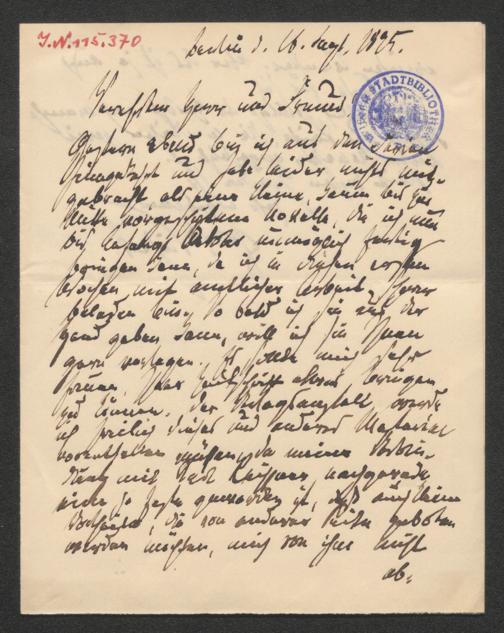 J.N. 115.370
Berlin d. 16. Sept. 1895.
STADTBIBLIOTHEK
Verehrter Herr und Freund,
Gestern Abend bin ich aus den Ferien
und habe leider nichts mit-
gebracht, als eine kleine, kaum bis zur
Mitte Novelle, die ich nun
bis Anfangs Oktober unmöglich fertig
bringen kann, da ich in diesen ersten
Wochen mit amtlicher Arbeit schwer
beladen bin. Sobald ich sie aus der
Hand geben kann, will ich sie Ihnen
gern vorlegen. Es sollte mich sehr
freuen, Ihrer Zeitschrift etwas bringen
zu können. Der Verlagsanstalt werde
ich freilich dieses und anderes Material
vorenthalten müssen, da meine Verbin-
dung mit nachgerade
eine so feste geworden ist, daß auch kein
Vortheil, die von anderer Seite geboten
werden möchten, mich von ihr nicht
ab-